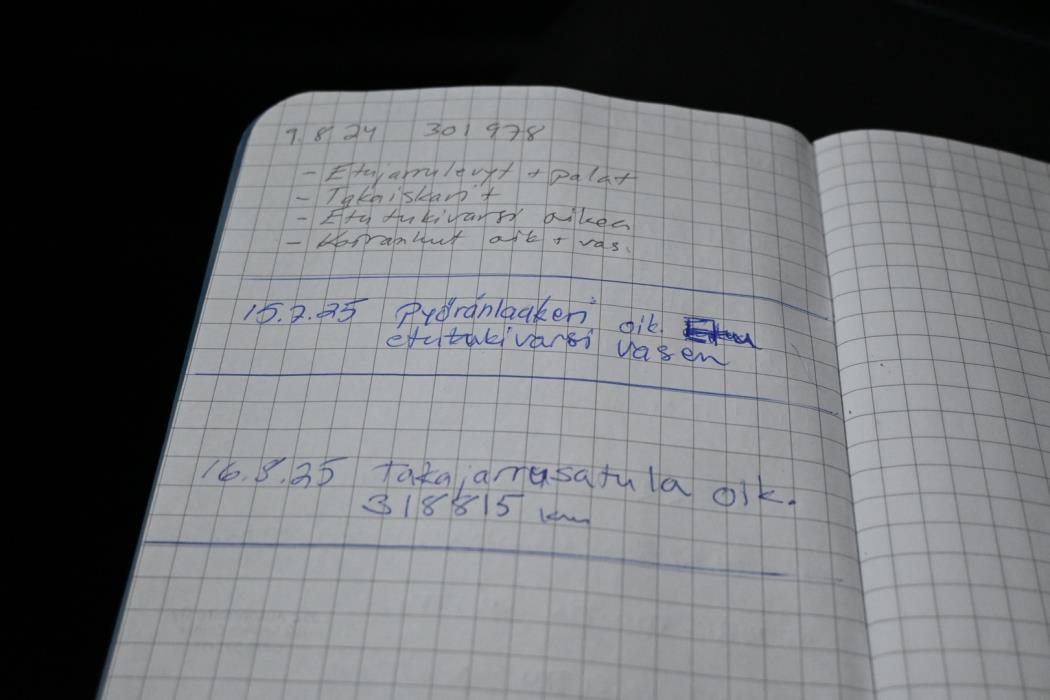 9.8.24 301 978
- Etujarrulevyt + palat
- Takaiskarit
- Etu tukivarsi oikea
- Koiranluut oik + vas.
15.2.25 Pyöränlaakeri oik. Etu
etutukivarsi vasen
16.8.25 Takajarrusatula oik.
318815 km